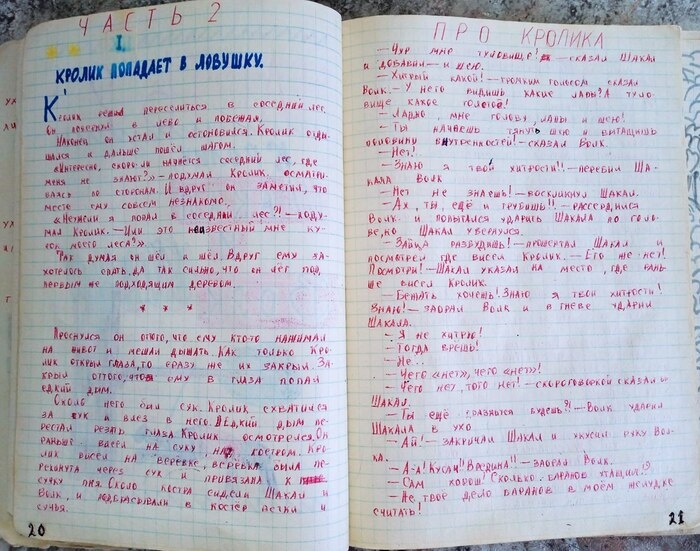 ЧАСТЬ 2
I.
КРОЛИК ПОПАДАЕТ В ЛОВУШКУ.
Кролик решил переселиться в соседний лес.
Он повернул в лево и побежал.
Наконец он устал и остоновился. Кролик отды-
шался и дальше пошёл шагом.
«Интересно, скоро-ли начнётся соседний лес, где
меня не знают?» — подумал Кролик, осматри-
ваясь по сторонам. И вдруг он заметил, что
место ему совсем незнакомо.
«Неужели я попал в соседний лес?! — поду-
мал Кролик. — Или это неизвестный мне ку-
сок моего леса?»
Так думая он шёл и шёл. Вдруг ему за-
хотелось спать, да так сильно, что он лёг под
первым же подходящим деревом.
* * *
Проснулся он оттого, что ему кто-то нажимал
на живот и мешал дышать. Как только Кро-
лик открыл глаза, то сразу же их закрыл. За-
крыл оттого, что ему в глаза попал
едкий дым.
Около него был сук. Кролик схватился
за сук и влез на него. Едкий дым пе-
рестал резать глаза. Кролик осмотрелся. Он
раньше висел на суку, над костром. Кро-
лик висел на верёвке, верёвка была пе-
рекинута через сук и привязана к
сучку пня. Около костра сидели Шакал и
Волк, и подбрасывали в костёр ветки и
сучья.
20
ПРО КРОЛИКА
— Чур мне туловище! — сказал Шакал
и добавил — и шею.
— Хитрый какой! — громким голосом сказал
Волк. — У него видишь какие лапы? А туло-
вище какое голое!
— Ладно, мне голову, лапы и шею!
— Ты начнёшь тянуть шею и вытащишь
половину внутренностей! — сказал Волк.
— Нет!
— Знаю я твои хитрости!! — перебил Ша-
кала Волк
— Нет не знаешь! — воскликнул Шакал.
— Ах, ты, ещё и грубишь!! — рассердился
Волк и попытался ударить Шакала по голо-
ве, но Шакал увернулся.
— Зайца разбудишь! — прошептал Шакал и
посмотрел где висел Кролик. — Его же нет!
Посмотри! — Шакал указал на место, где рань-
ше висел кролик.
— Бежать хочешь! Знаю я твои хитрости!
Знаю! — заорал Волк и в гневе ударил
Шакала.
— Я не хитрю!
— Тогда врёшь!
— Не...
— Чего «нет», чего «нет»?
— Чего нет, того нет! — скороговоркой сказал
Шакал.
— Ты ещё дразнится будешь?! — Волк ударил
Шакала в ухо
— Ай! — закричал Шакал и укусил руку Вол-
ка.
— А-а! Кусать! Вредина!! — заорал Волк.
— Сам хорош! Сколько баранов утащил?!
— Не твоё дело баранов в моём желудке
считать!
21